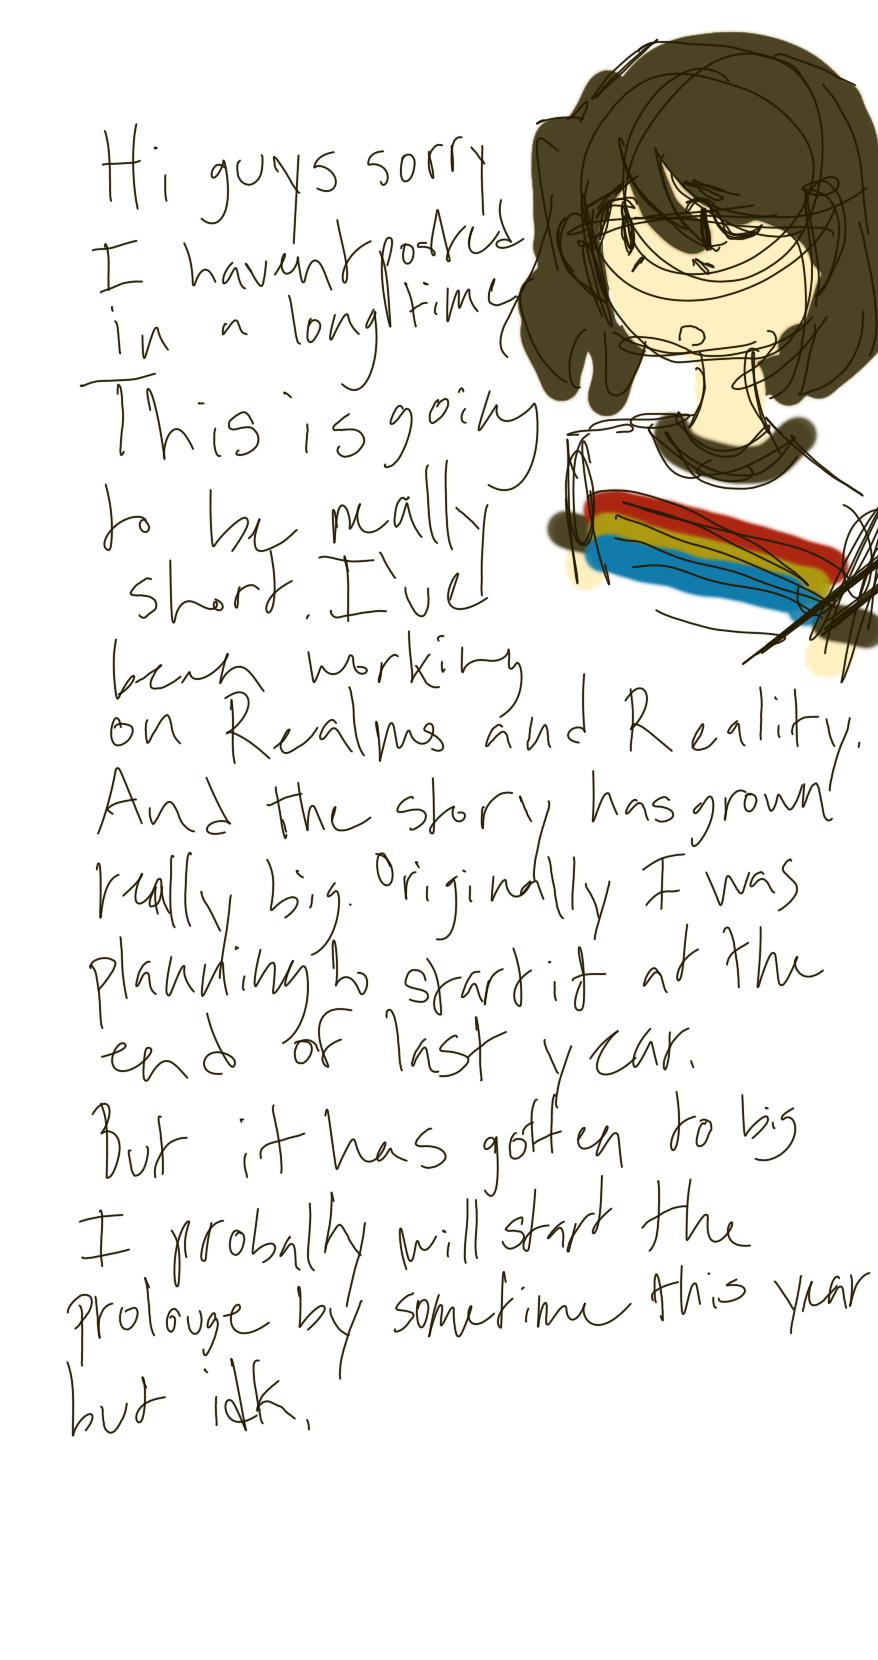 Hi guys sorry
I havent posted
in a long time
This is going
to be really
short. I've
been working
on Realms and Reality.
And the story has grown
really big. Originally I was
planning to start it at the
end of last year.
But it has gotten to big
I probally will start the
prolouge by sometime this year
but idk.